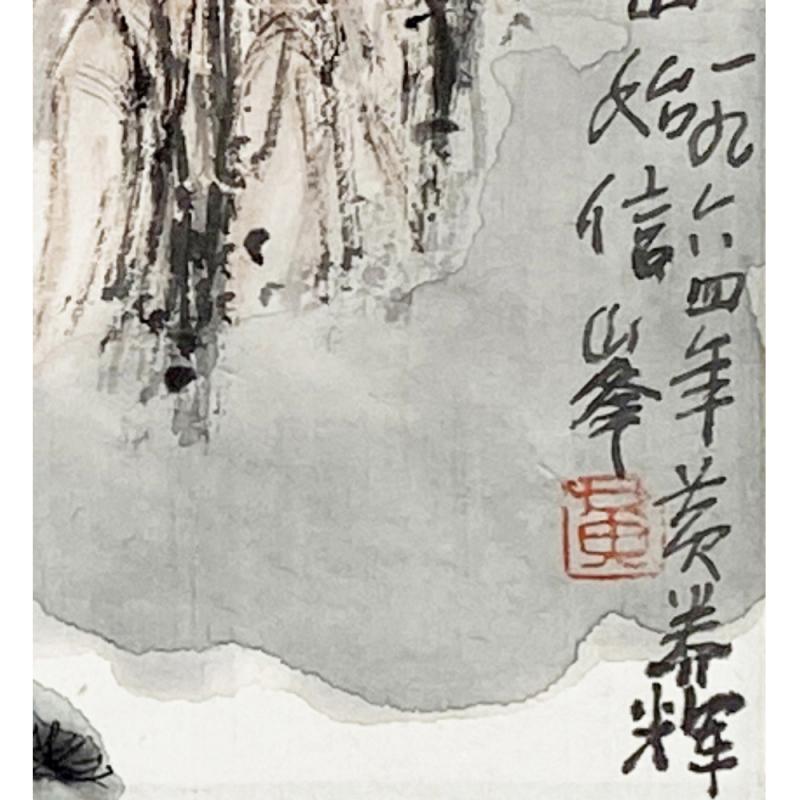 一九六四年黄养辉
山始信峯
黄